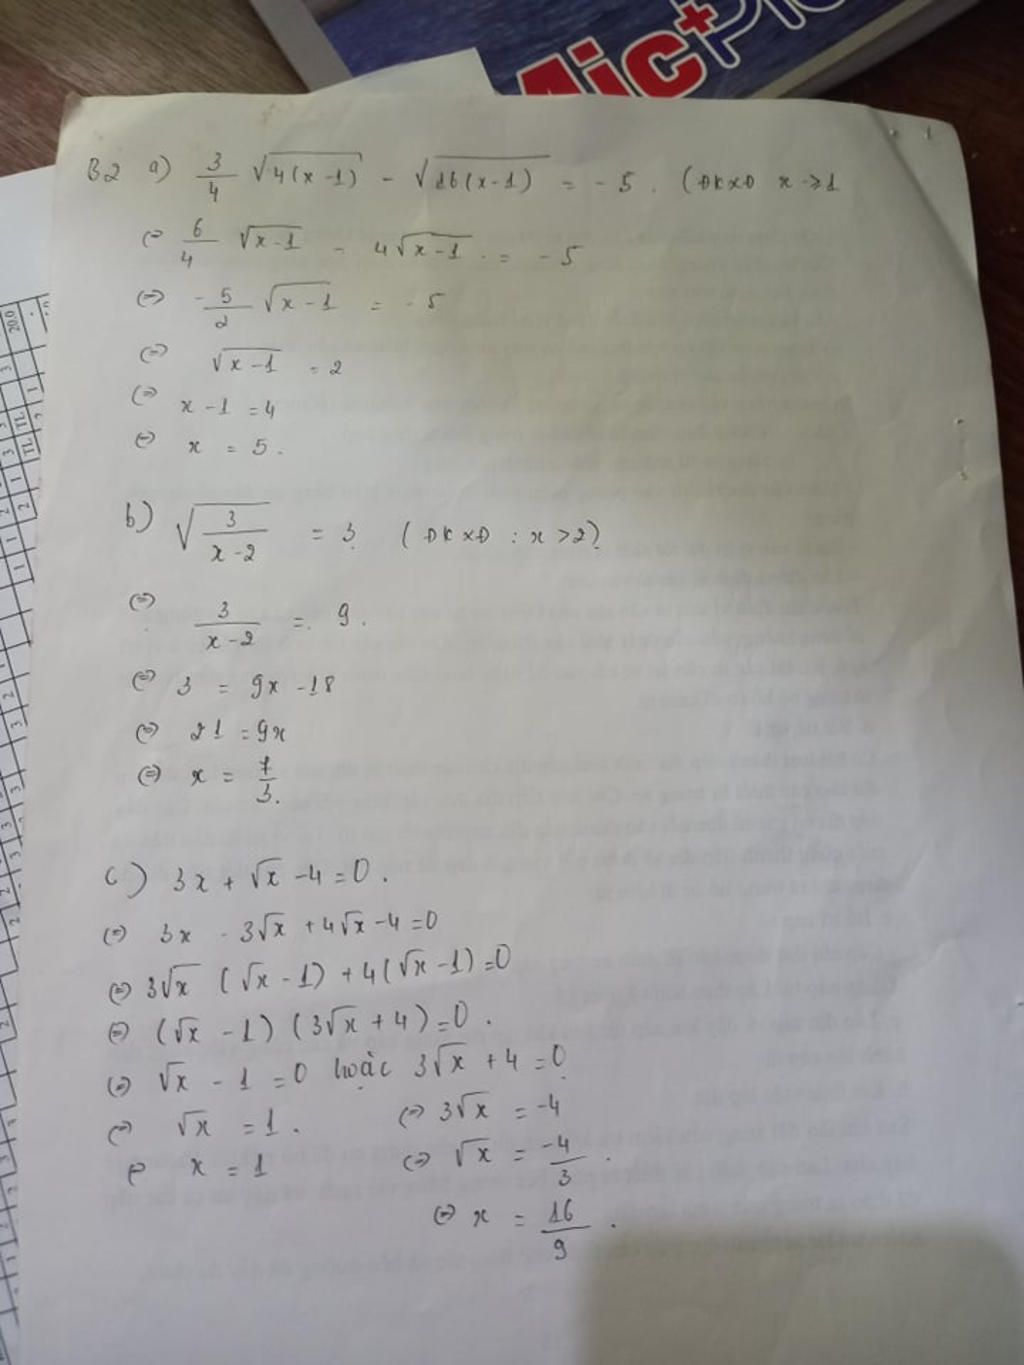 Aic+Plu
B2 a) 3/4 √4(x-1) - √16(x-1) = -5. (ĐKXĐ x ≥ 1
(=) 6/4 √x-1 - 4√x-1 . = -5
(=) -5/2 √x-1 = -5
(=) √x-1 = 2
(=) x-1 = 4
(=) x = 5.
b) √3/(x-2) = 3 (ĐKXĐ : x > 2)
(=) 3/(x-2) = 9.
(=) 3 = 9x - 18
(=) 21 = 9x
(=) x = 7/3.
c) 3x + √x - 4 = 0.
(=) 3x - 3√x + 4√x - 4 = 0
(=) 3√x (√x - 1) + 4(√x - 1) = 0
(=) (√x - 1) (3√x + 4) = 0.
(=) √x - 1 = 0 hoặc 3√x + 4 = 0
(=) √x = 1. (=) 3√x = -4
(=) x = 1 (=) √x = -4/3.
(=) x = 16/9.